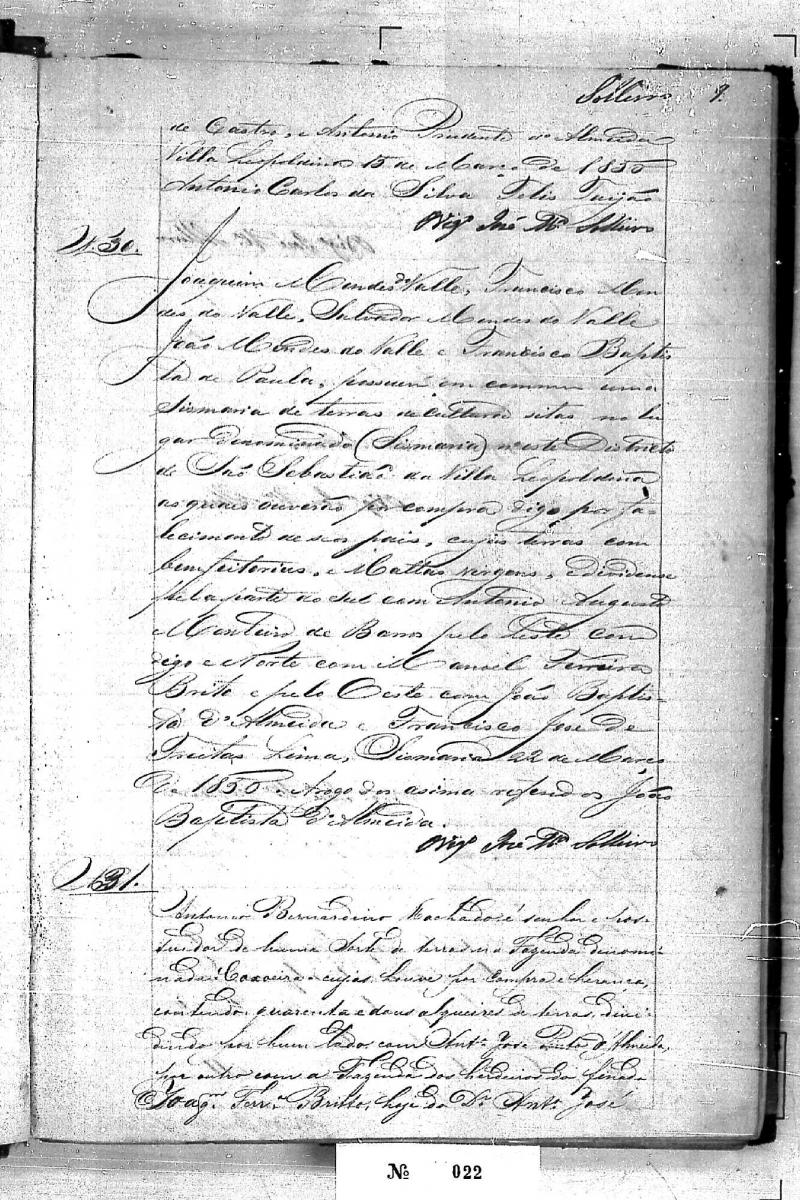 Solleiro 9.
de Castro, e Antonio Prudente de Almeida
Villa Leopoldina 15 de Março de 1856
Antonio Carlos da Silva Telis
Vigº José Mª Solleiro
N. 30.
Joaquim Mendes do Valle, Francisco Men-
des do Valle, Salvador Mendes do Valle
João Mendes do Valle e Francisco Baptis
ta de Paula, possuem em commum uma
Sismaria de terras de culturas sitas no lu
gar denominado (Sismaria) neste Districto
de São Sebastião da Villa Leopoldina
as quaes ouverão por compra digo por fa-
lecimento de seos pais, cujas terras com
bemfeitorias, e Mattas virgens, e dividense
pela parte do Sul com Antonio Augusto
Monteiro de Barros pelo Leste com
digo e Norte com Manoel Ferreira
Brito e pelo Oeste com João Baptis-
ta d'Almeida e Francisco José de
Freitas Lima, Sismaria 22 de Março
de 1856. Arogo dos asima referidos João
Baptista d'Almeida.
Vigº José Mª Solleiro
N. 31.
Antonio Bernardino Machado é senhor e pos-
suidor de huma Sorte de terras na Fazenda denomi
nada Caxoeira cujas houve por compra e herança,
contendo quarenta e dous alqueires de terras, divi
dindo por hum lado com Antº José Pinto d'Almeida,
por outro com a Fazenda dos herdeiros do finado
Joaqm Ferrª Britto, hoje do Dr Antº José
Nº 022